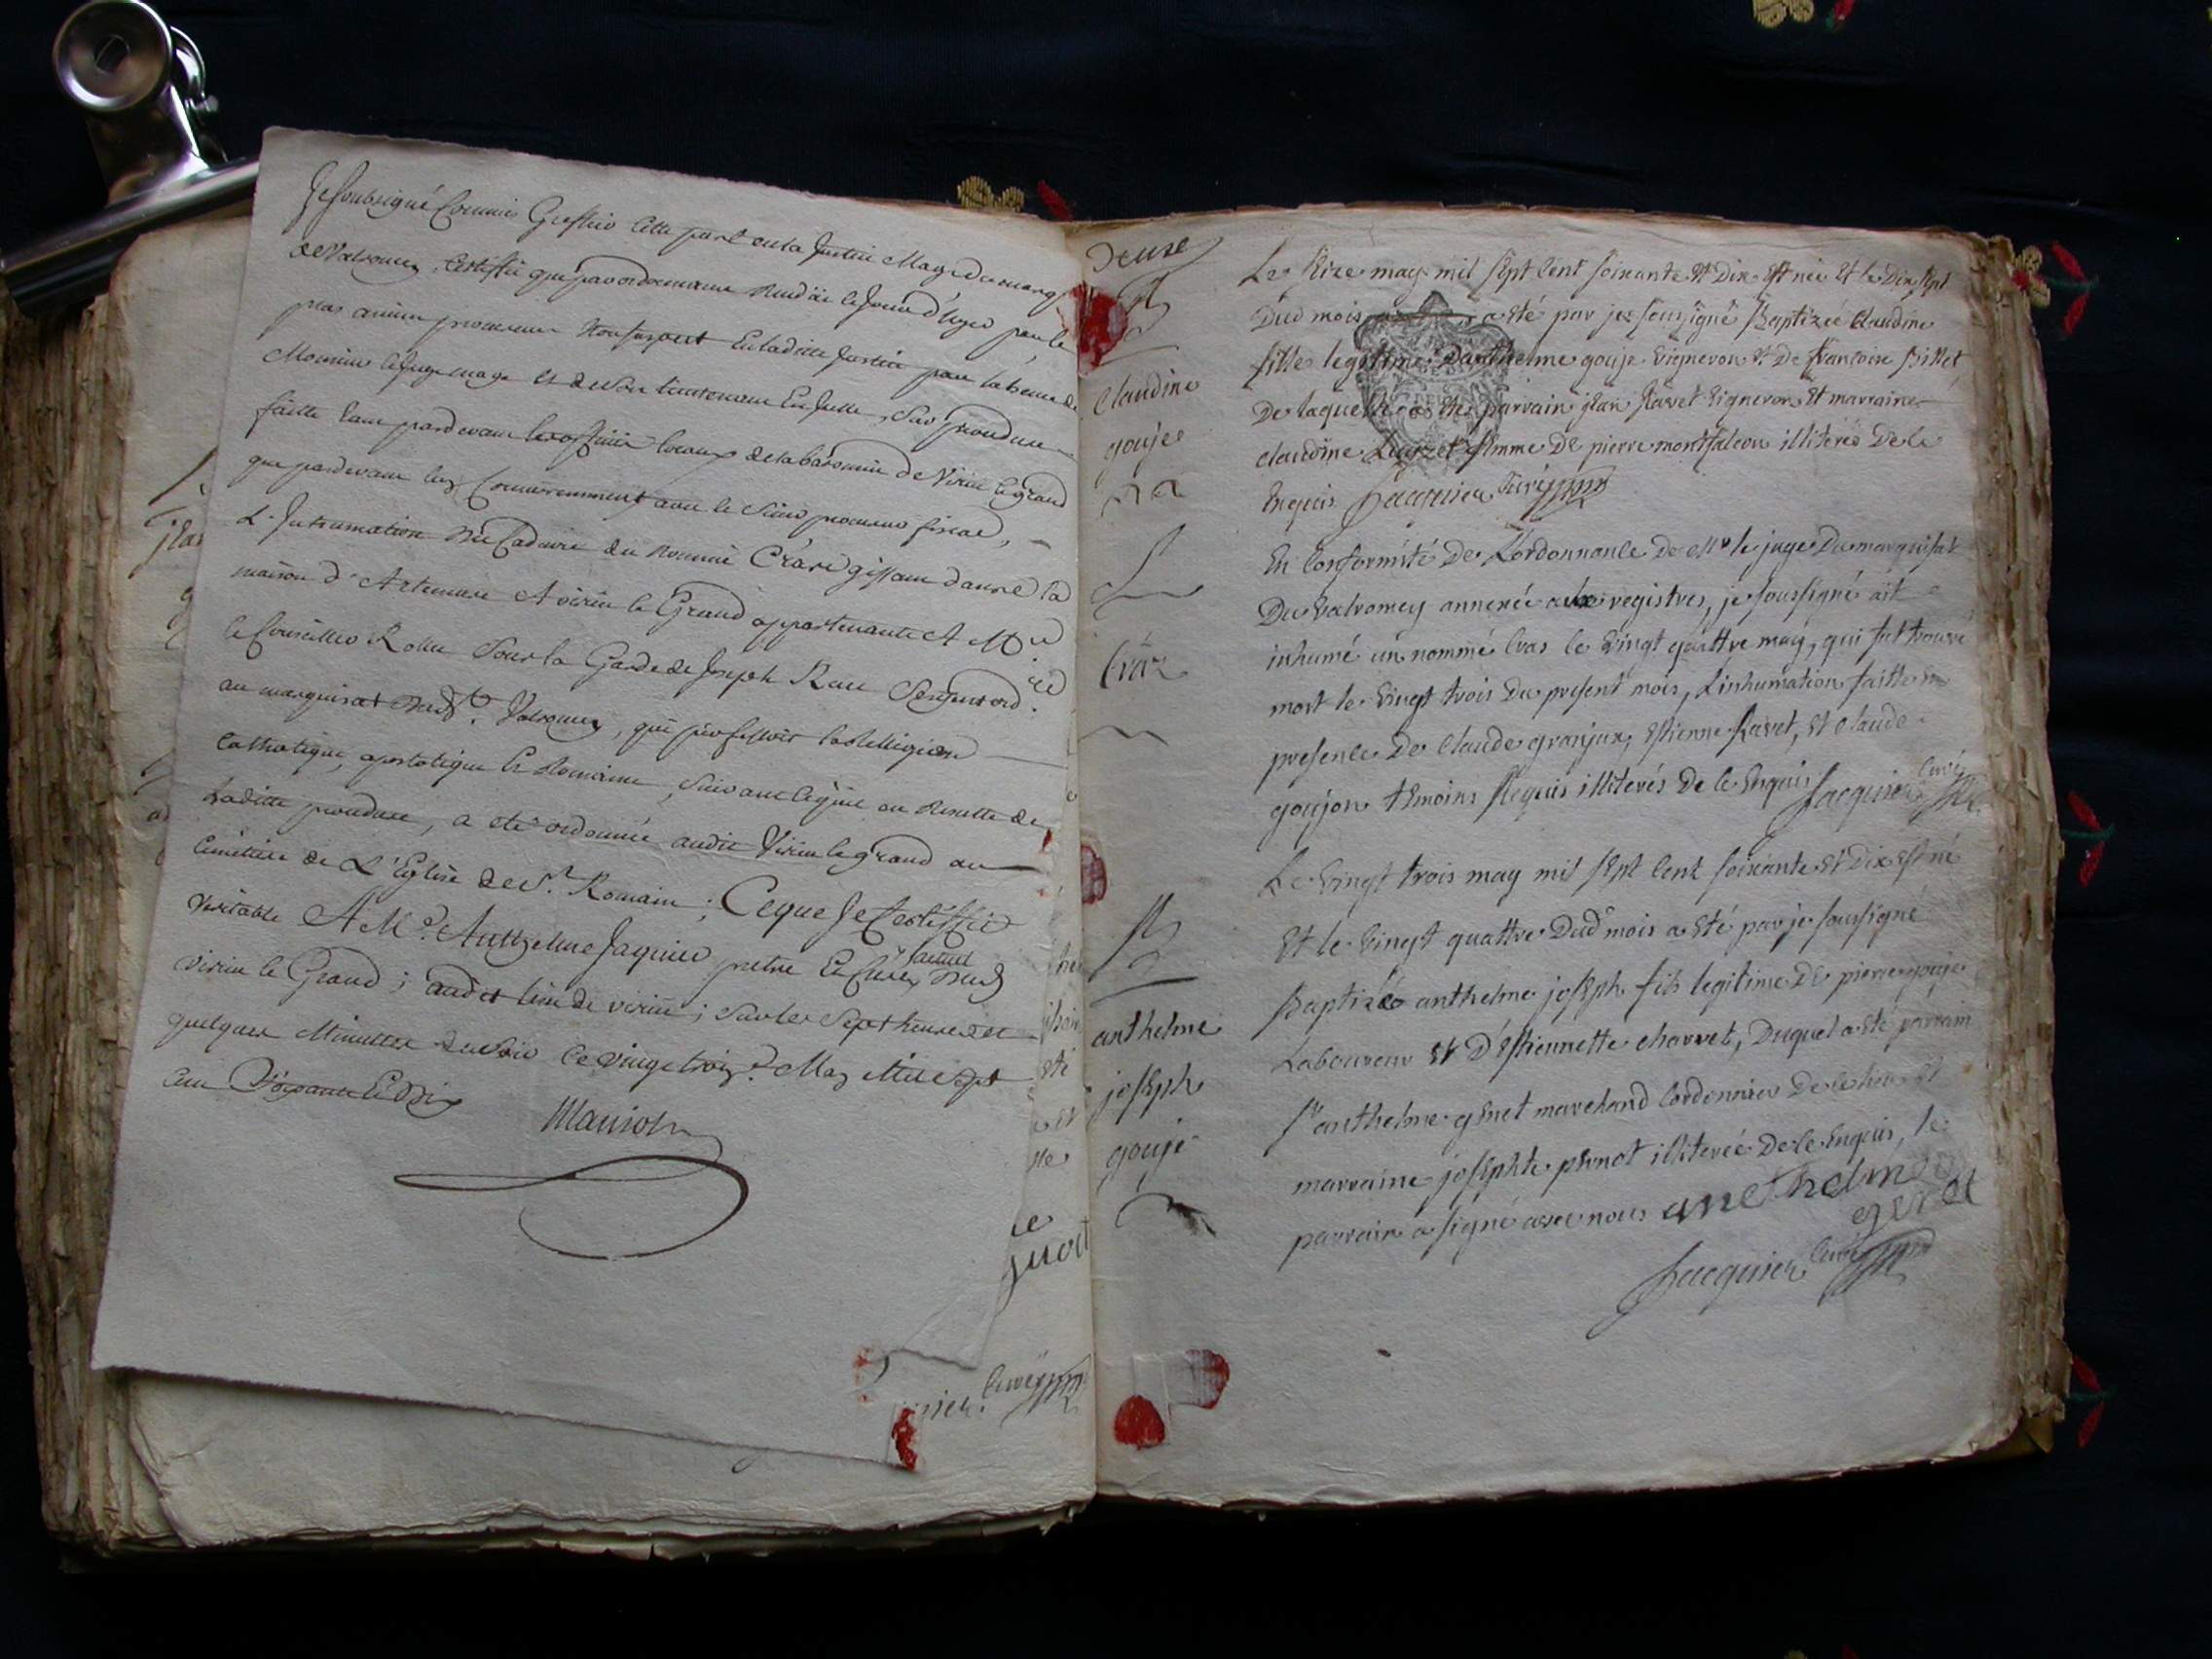 Je soubsigné Commis Greffier cette part en la Justice Mage du marq
de Valromey, Certiffie que par ordonnance rendüe le Jourd'huy par le
plus ancien procureur Non suspect En laditte Justice pour labsence de
Monsieur le Juge mage et de Son lieutenant En Icelle, Sur procedure
faitte tant pardevant les officiers locaux de la baronnie de Virieu le grand
que pardevant luy Conjointement avec le Sieur procureur fiscal,
L'Inhumation du Cadavre du Nommé Crâre gissant dans la
maison d'Artemare A virieu le Grand appartenante A Mr
le Conseiller Rollin Sous la Garde de Joseph Sergent ord.re
au marquisat dud.t Valromey, qui professoit la Relligion
Catholique, apostolique & Romaine, Suivant le qu'il en Resulte de
Laditte procedure, a eté ordonnée audit Virieu le grand au
Cimettiere de L'Eglise de St. Romain; Ce que Je Certiffie
veritable A Mr. Anthelme Jaquier pretre Et Curé, actuel dud
virieu le Grand; audit lieu de virieu; Sur les Sept heures et
quelques Minuttes du Soir Ce vingt trois.e May Mil Sept
Cent Soixante Et Dix
Maniots
juot
curé
Deuxe
Claudine
gouje
Crâz
anthelme
joseph
gouje
Le seize may mil sept cent soixante Et Dix Est née Et le Dix sept
Dud mois a Eté par je sousigné Baptizée Claudine
fille legitime D'anthelme gouje vigneron Et De françoise Billet
De laquelle a Eté parrain jean Ravet vigneron Et marraine
claudine femme De pierre montfalcon illiterés De ce
Enquis Jacquier Curé
En Conformité De L'ordonnance De Mr le juge Du marquisat
Du valromey annexée aux registres, je soussigné ait
inhumé un nommé Cras le vingt quattre may, qui fut trouvé
mort le vingt trois Du present mois, L'inhumation faitte En
presence De Claude granjux, Estienne Ravet, Et Claude
goujon témoins Requis illiterés De ce Enquis Jacquier Curé
Le vingt trois may mil sept cent soixante Et Dix Est né
Et le vingt quattre Dud mois a Eté par je soussigné
Baptizé anthelme joseph fils legitime De pierre gouje
Laboureur Et D'Estiennette charvet, Duquel a Eté parrain
sr anthelme genet marchand Cordonnier De ce lieu Et
marraine josephte pernot illiterée De ce Enquis, le
parrain a signé avec nous anethelme
genet
Jacquier Curé